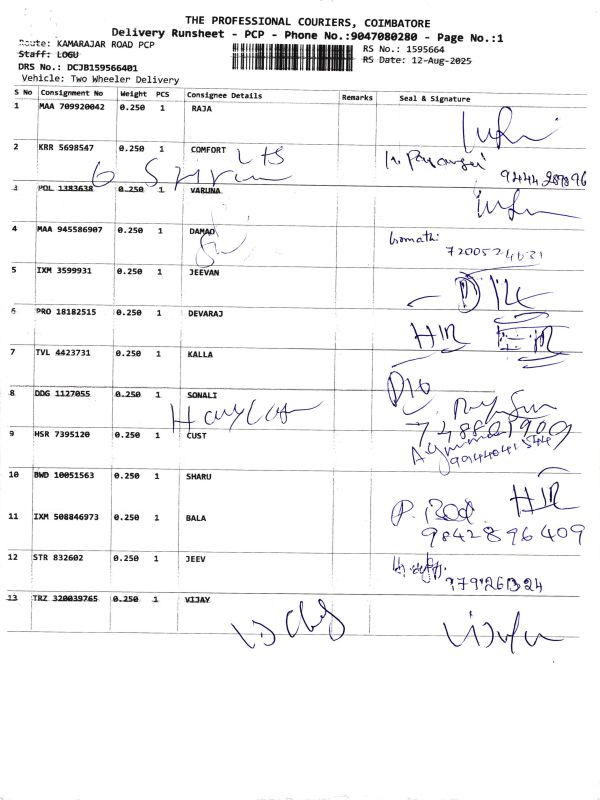 THE PROFESSIONAL COURIERS, COIMBATORE
Delivery Runsheet - PCP - Phone No.:9047080280 - Page No.:1
Route: KAMARAJAR ROAD PCP
RS No.: 1595664
Staff: LOGU
RS Date: 12-Aug-2025
DRS No.: DCJB159566401
Vehicle: Two Wheeler Delivery
S No Consignment No Weight PCS Consignee Details Remarks Seal & Signature
1 MAA 709920042 0.250 1 RAJA
2 KRR 5698547 0.250 1 COMFORT
3 POL 1383638 0.250 1 VARUNA
4 MAA 945586907 0.250 1 DAMAO
Gomathi
5 IXM 3599931 0.250 1 JEEVAN
6 PRO 18182515 0.250 1 DEVARAJ
HIR
7 TVL 4423731 0.250 1 KALLA
8 DDG 1127055 0.250 1 SONALI
9 HSR 7395120 0.250 1 CUST
9944041544
10 BWD 10051563 0.250 1 SHARU
HIR
11 IXM 508846973 0.250 1 BALA
9842896409
12 STR 832602 0.250 1 JEEV
13 TRZ 320039765 0.250 1 VIJAY